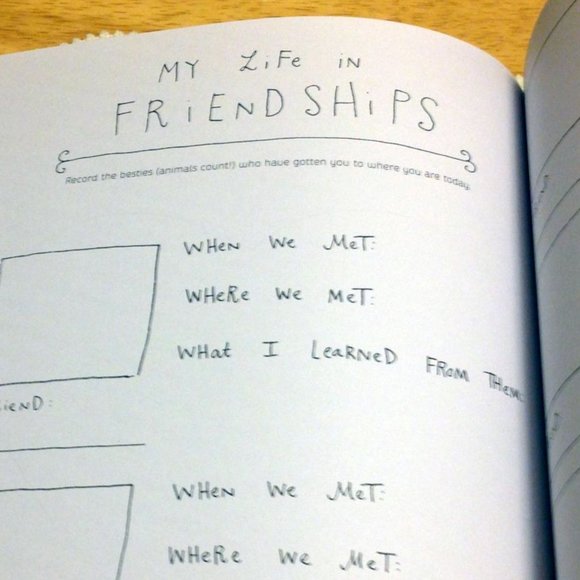 MY LiFe iN
FRiENDSHiPS
Record the besties (animals count!) who have gotten you to where you are today.
WHeN We MeT:
WHeRe We MeT:
WHat I LeaRNeD FRoM THem:
WHeN We MeT:
WHeRe We MeT: